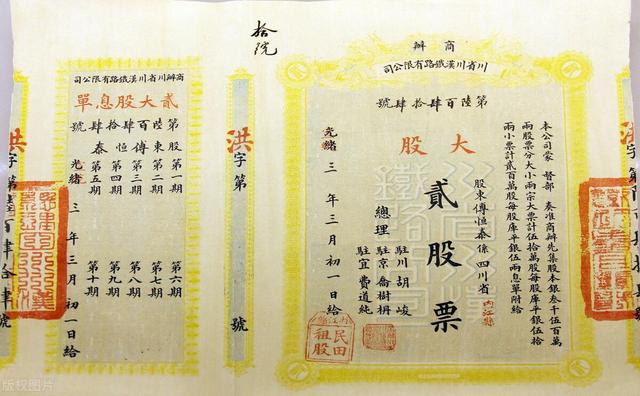 商辦
川省川漢鐵路有限公司
第陸百肆拾肆號
大股
本公司蒙 督部 奏准商辦先集股本銀叁千伍百萬
兩股票分大小兩宗大票計伍拾萬股每股庫平銀伍拾
兩小票計貳百萬股每股庫平銀伍兩息單附給
股東傅恒泰係四川省內江縣
貳股票
總理
駐川胡峻
駐京喬樹枬
駐宜費道純
光緒三年三月初一日給
內江縣
民田租股
拾
洪字第
號
商辦川省川漢鐵路有限公司
貳大股息單
第陸百肆拾肆號
股東傅恒泰
第一期
第二期
第三期
第四期
第五期
第六期
第七期
第八期
第九期
第十期
光緒三年三月初一日給
洪字第
百肆拾肆號
洪字第
版权图片